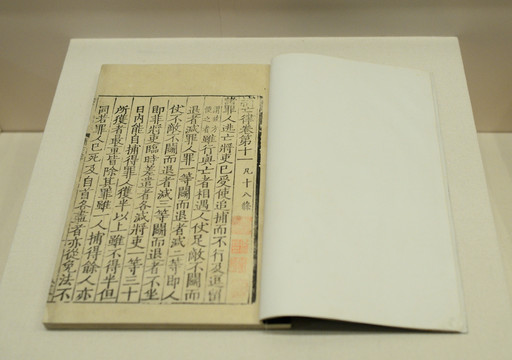 亡律卷第十一 凡十八條
罪人逃亡將吏已受使追捕而不行及逗留
謂故方便之者雖行與亡者相遇人仗足敵不鬬而
退者減罪人罪一等鬬而退者減二等即人
仗不敵不鬬而退者減三等鬬而退者不坐
即非將吏臨時差遣者各減將吏一等三十
日內能自捕得罪人獲半以上雖不得半但
所獲者最重皆除其罪雖一人捕得餘人亦
同若罪人已死及自首各盡者亦從免法不